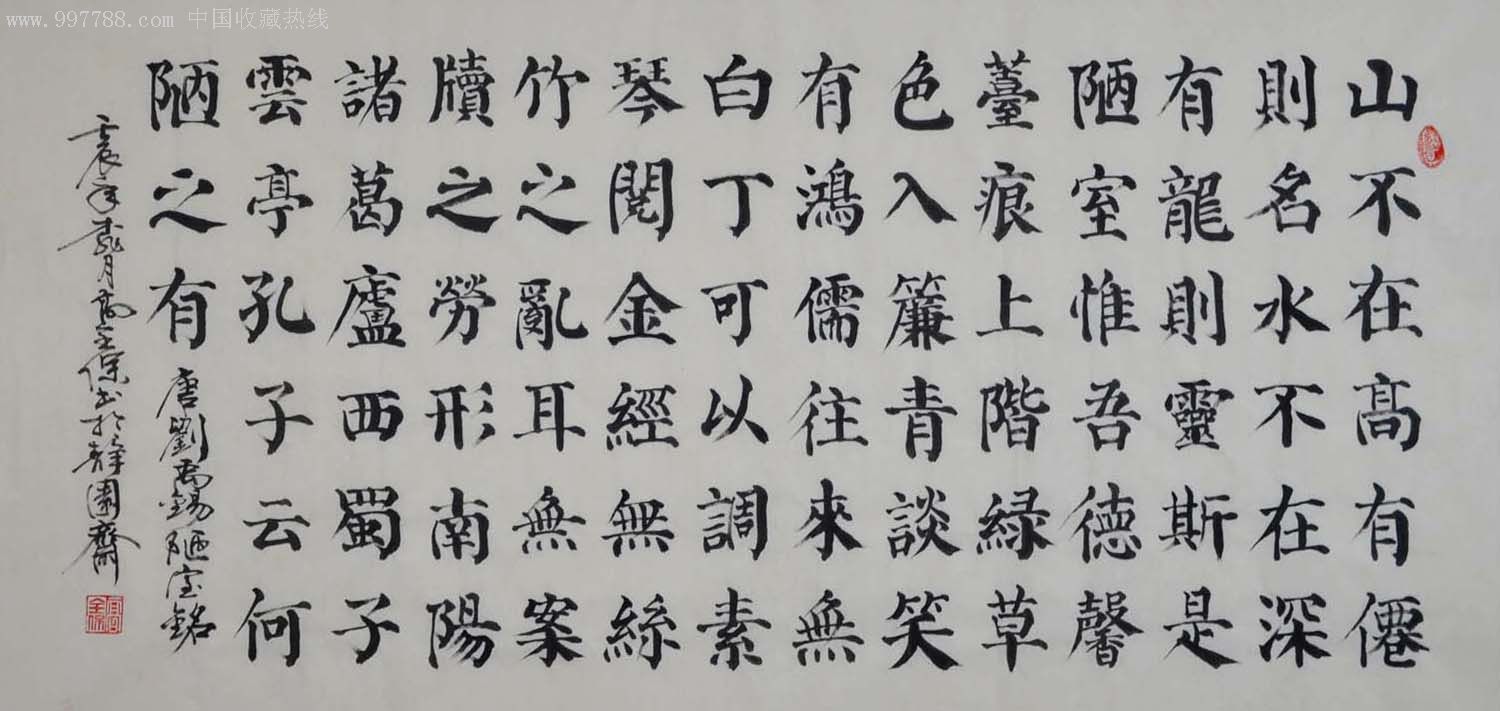 www.997788.com 中国收藏热线
山不在高有僊
則名水不在深
有龍則靈斯是
陋室惟吾德馨
薹痕上階緑草
色入簾青談笑
有鴻儒往來無
白丁可以調素
琴閱金經無絲
竹之亂耳無案
牘之勞形南陽
諸葛廬西蜀子
雲亭孔子云何
陋之有
唐劉禹錫陋室銘
年春月高全保书於静園齋